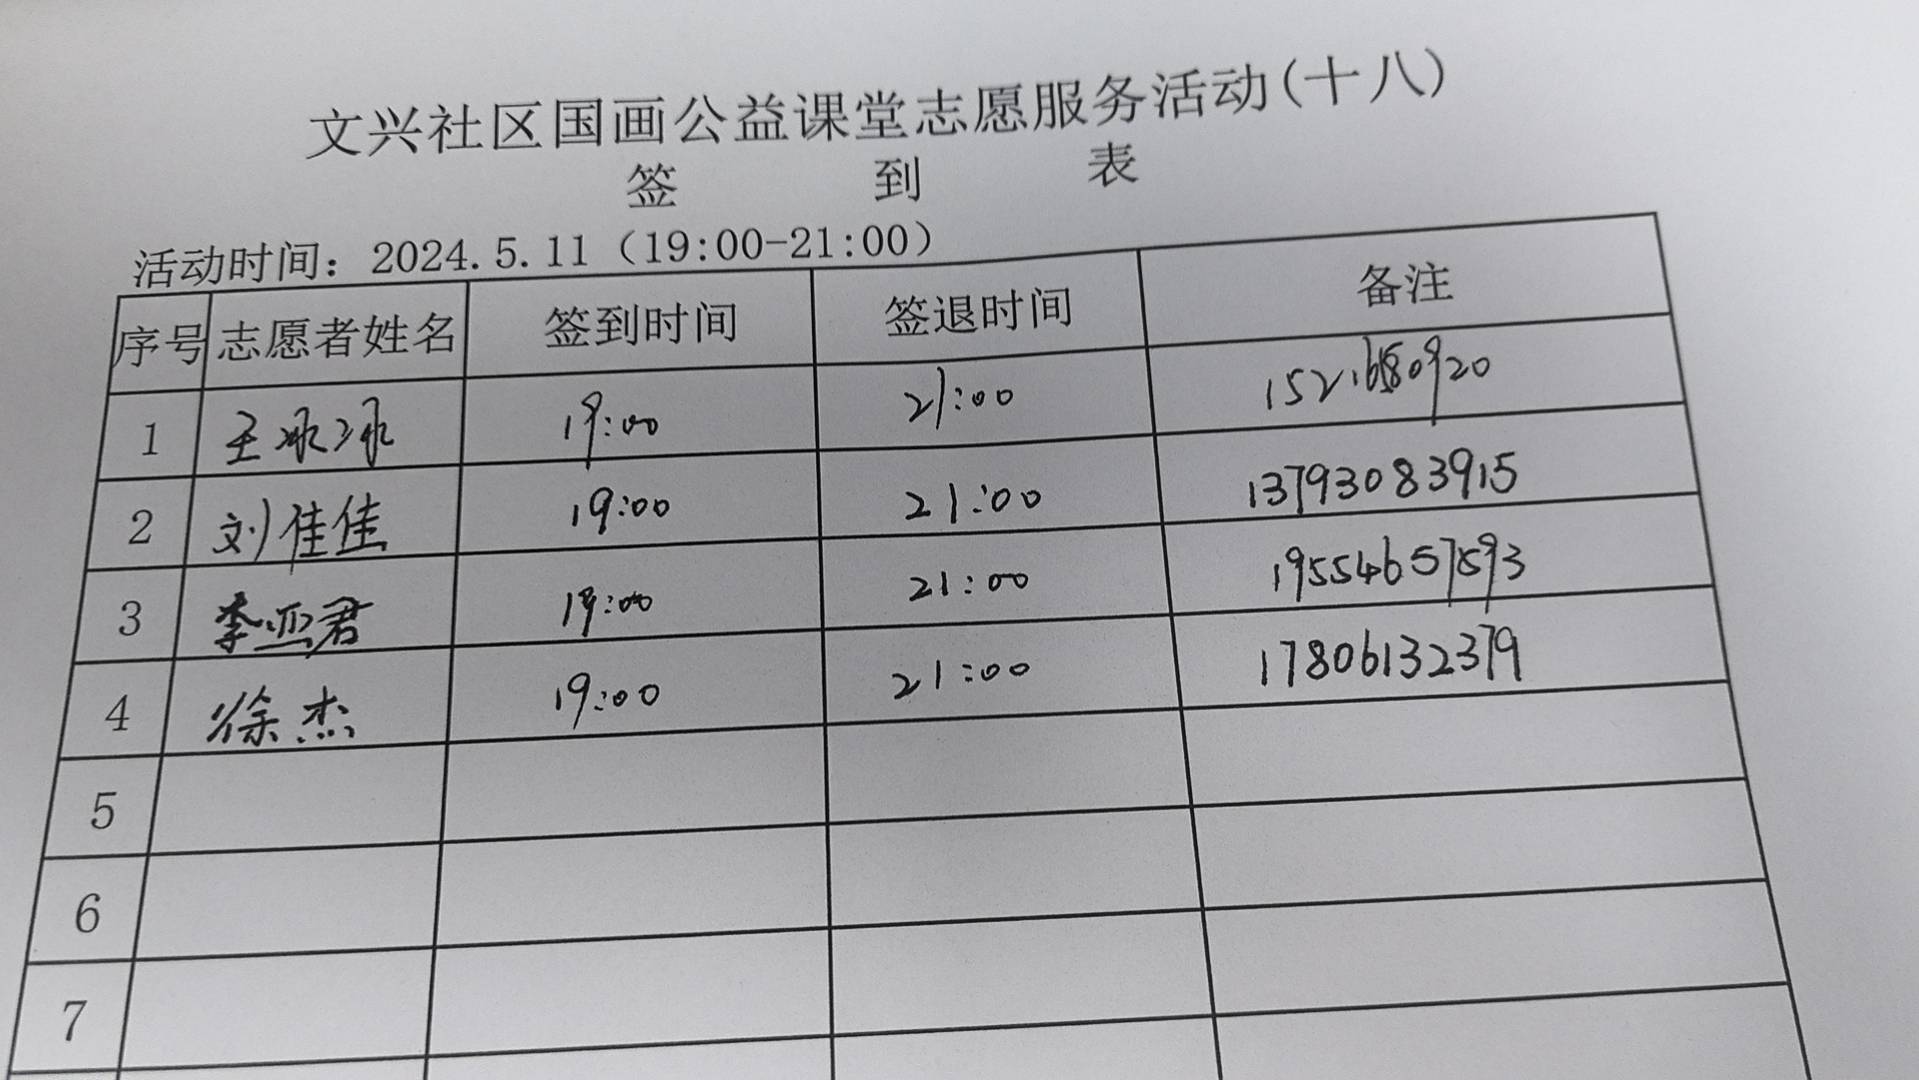 文兴社区国画公益课堂志愿服务活动(十八)
签 到 表
活动时间：2024.5.11（19:00-21:00）
序号 志愿者姓名 签到时间 签退时间 备注
1 王冰冰 19:00 21:00
2 刘佳佳 19:00 21:00 13793083915
3 李亚君 19:00 21:00 19554657593
4 徐杰 19:00 21:00 17806132379
5
6
7